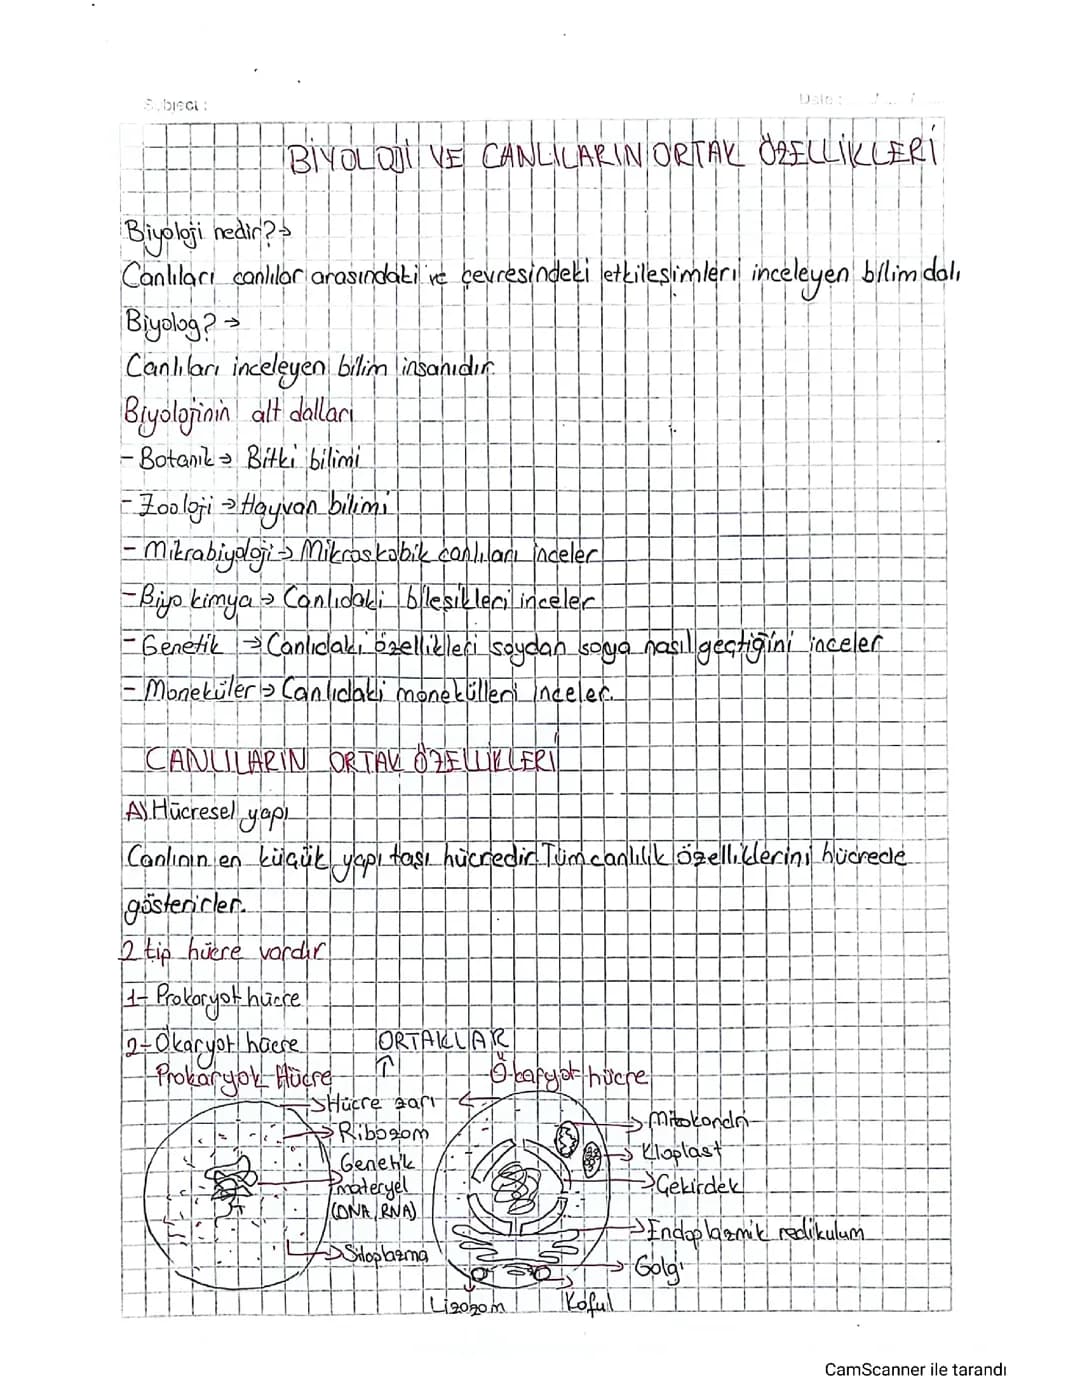 Subject :
Date :
BİYOLOJİ VE CANLILARIN ORTAK ÖZELLİKLERİ
Biyoloji nedir?→
Canlıları canlılar arasındaki ve çevresindeki etkileşimleri inceleyen bilim dalı
Biyolog? →
Canlıları inceleyen bilim insanıdır.
Biyolojinin alt dalları
- Botanik → Bitki bilimi
- Zooloji → Hayvan bilimi
- Mikrabiyoloji → Mikroskobik canlıları inceler
- Biyo kimya → Canlıdaki bileşikleri inceler
- Genetik → Canlıdaki özellikleri soydan soya nasıl geçtiğini inceler
- Moneküler → Canlıdaki monekülleri inceler.
CANLILARIN ORTAK ÖZELLİKLERİ
A) Hücresel yapı
Canlının en küçük yapı taşı hücredir. Tüm canlılık özelliklerini hücrede
gösterirler.
2 tip hücre vardır
1- Prokaryot hücre
2- Ökaryot hücre
ORTAKLAR
↑
Prokaryot Hücre
Ökaryot hücre
Hücre zarı
Mitokondri
Ribozom
Kloplast
Genetik
materyel
Çekirdek
(DNA, RNA)
Endoplazmik redikulum
Sitoplazma
Golgi
Lizozom
Koful
CamScanner ile tarandı